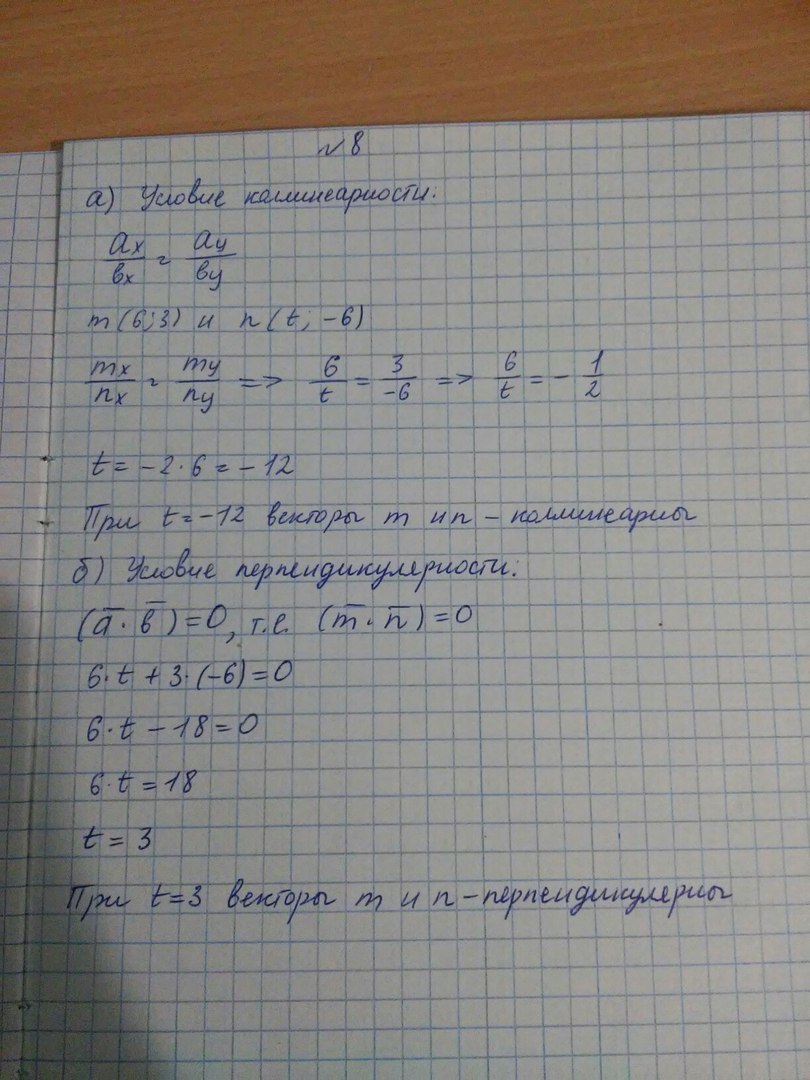 №8
а) Условие коллинеарности:
ax/вx = ay/вy
m(6;3) и n(t; -6)
mx/nx = my/ny => 6/t = 3/-6 => 6/t = - 1/2
t = -2·6 = -12
При t=-12 векторы m и n - коллинеарны
б) Условие перпендикулярности:
(a̅ · в̅) = 0, т.е. (m̅ · n̅) = 0
6·t + 3·(-6) = 0
6·t - 18 = 0
6·t = 18
t = 3
При t=3 векторы m и n - перпендикулярны